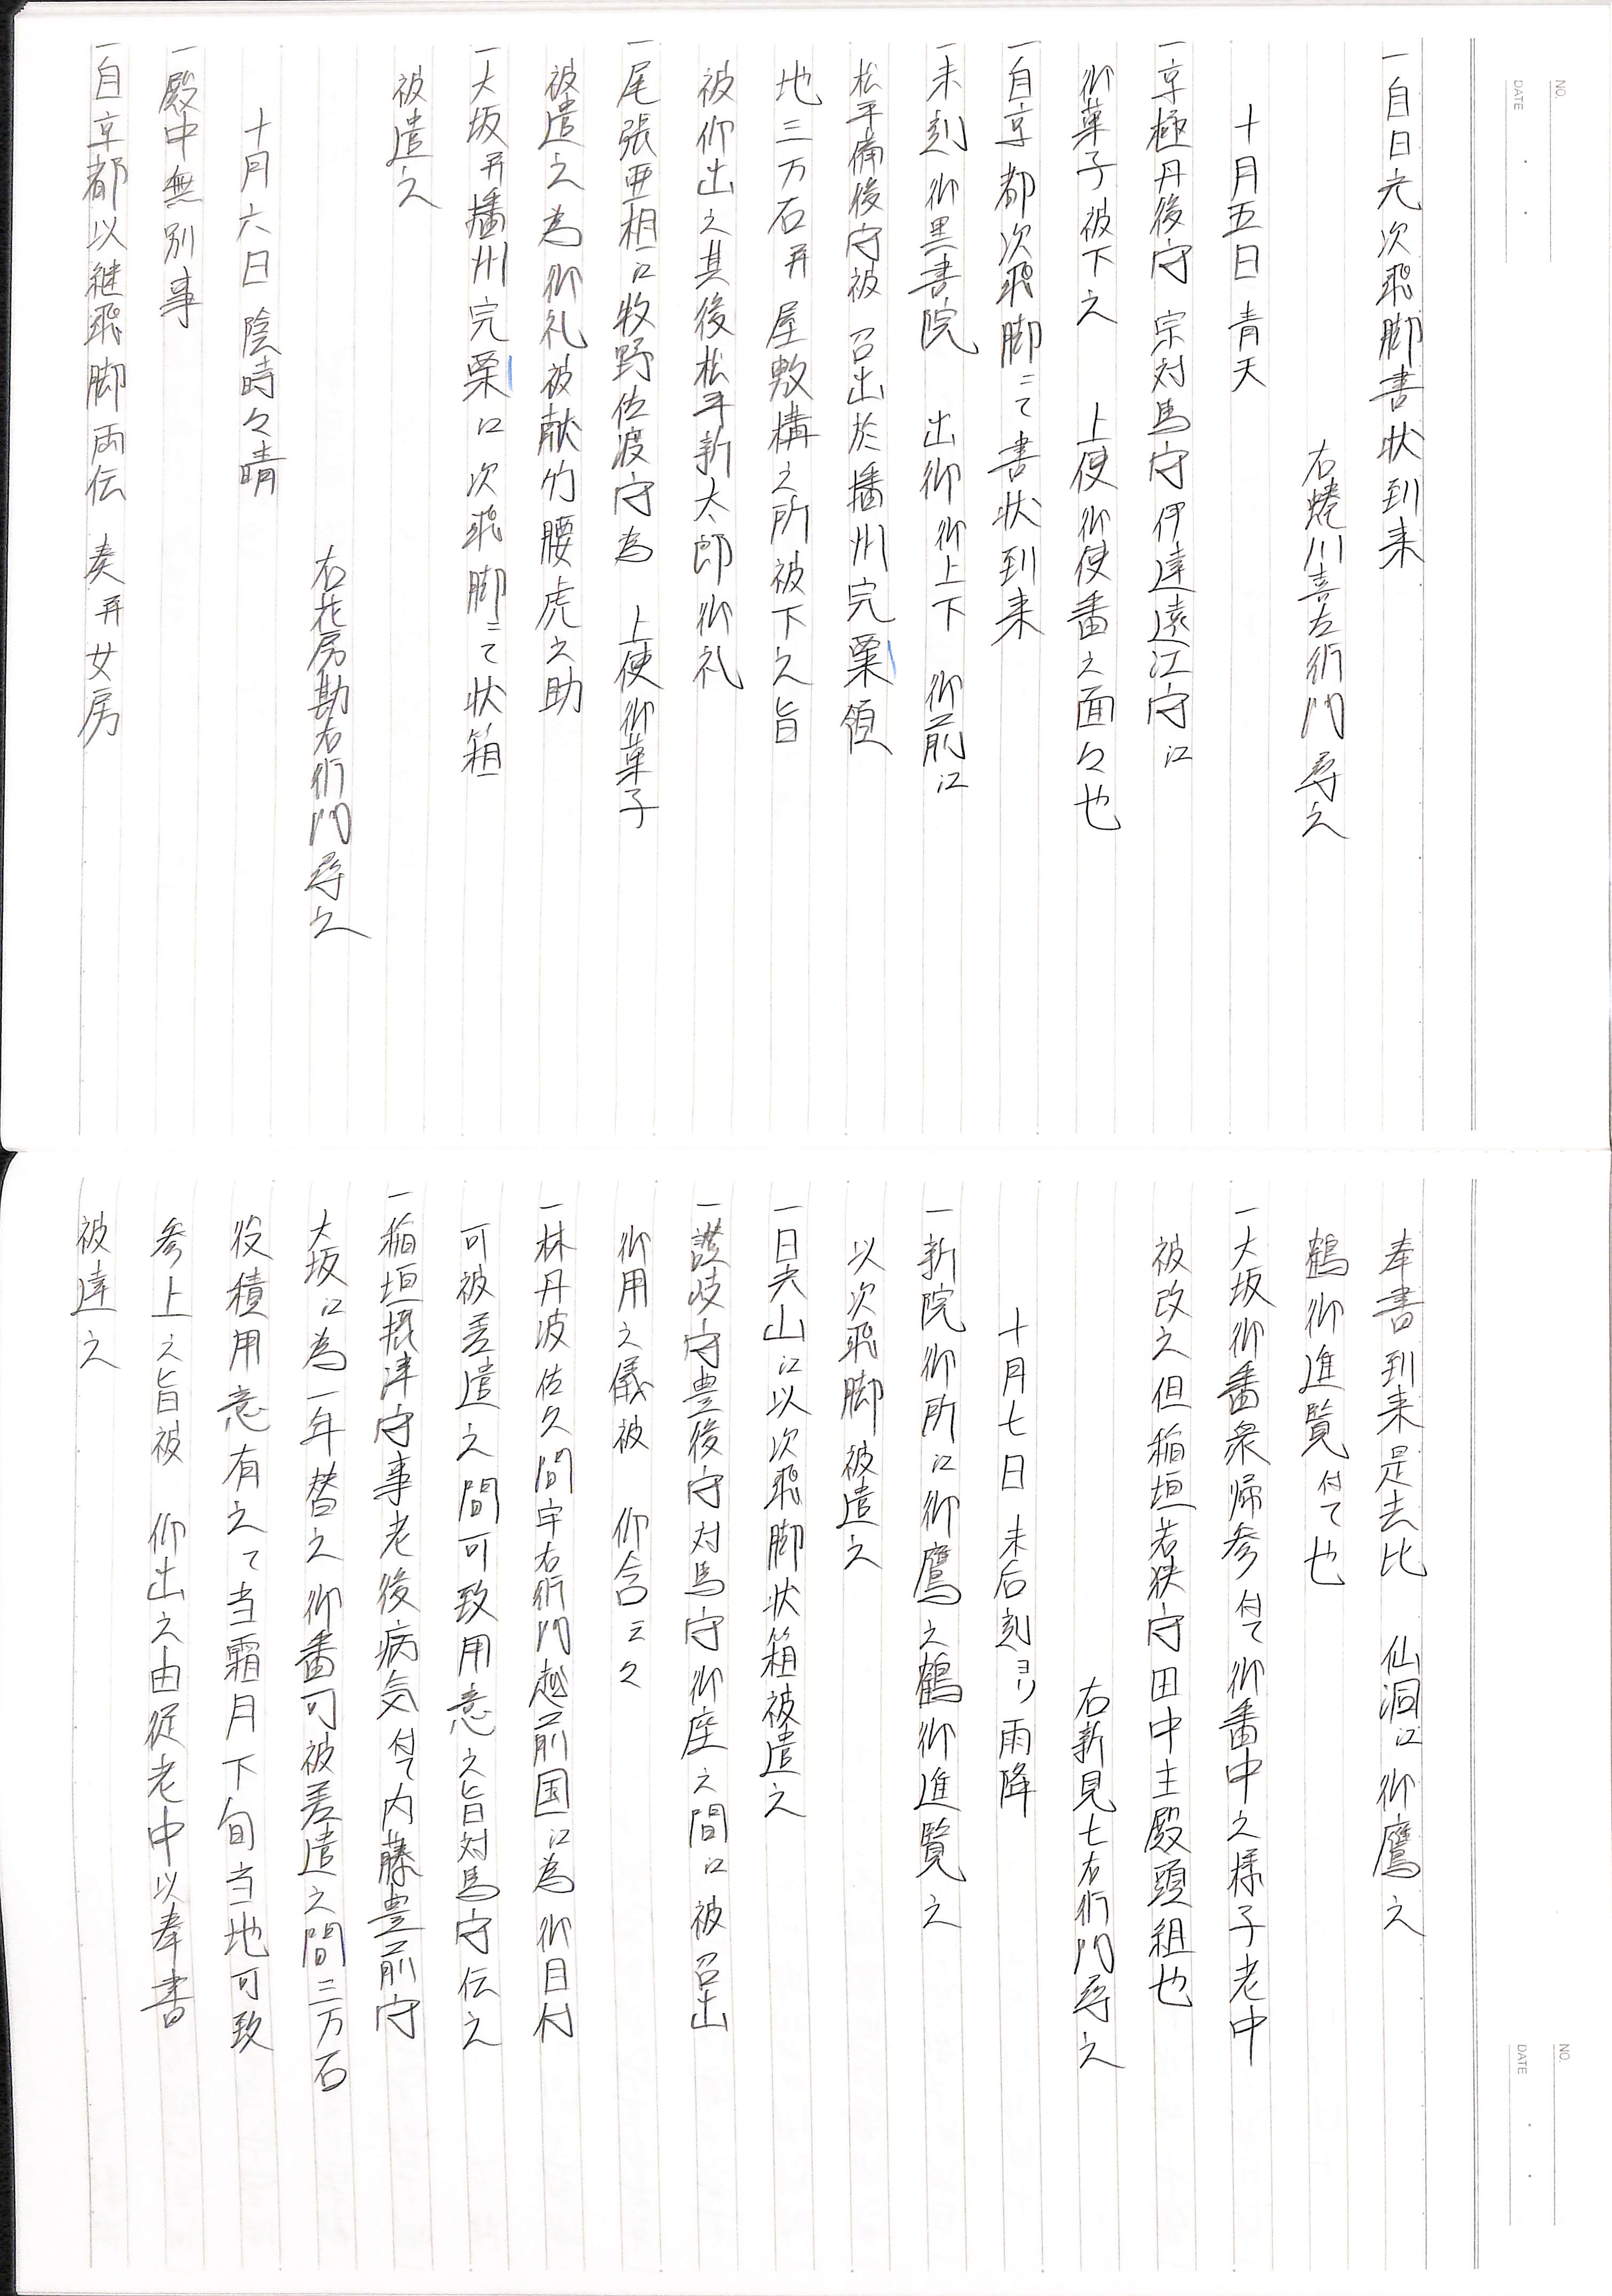 一自日光次飛脚書状到来
右蜷川喜左衛門尋之
十月五日 青天
一京極丹後守 宗対馬守伊達遠江守江
御菓子被下之 上使御使番之面々也
一自京都次飛脚ニて書状到来
一未刻御黒書院 出御御上下 御前江
松平備後守被 召出於播州宍粟領
地三万石并屋敷構之所被下之旨
被仰出之其後松平新太郎御礼
一尾張亜相江牧野佐渡守為 上使御菓子
被遣之為御礼被献竹腰虎之助
一大坂并播州宍粟江次飛脚ニて状箱
被遣之
右花房勘右衛門尋之
十月六日 陰時々晴
一殿中無別事
一自京都以継飛脚両伝 奏并女房
奉書到来是去比 仙洞江御鷹之
鶴御進覧付て也
一大坂御番衆帰参付て御番中之様子老中
被改之但稲垣若狭守田中主殿頭組也
右新見七右衛門尋之
十月七日 未后刻ヨリ雨降
一新院御所江御鷹之鶴御進覧之
以次飛脚被遣之
一日光山江以次飛脚状箱被遣之
一讃岐守豊後守対馬守御座之間江被召出
御用之儀被 仰含云々
一林丹波佐久間宇右衛門越前国江為御目付
可被差遣之間可致用意之旨対馬守伝之
一稲垣摂津守事老後病気付て内藤豊前守
大坂江為一年替之御番可被差遣之間三万石
役積用意有之て当霜月下旬当地可致
参上之旨被 仰出之由従老中以奉書
被達之
NO.
DATE
NO.
DATE